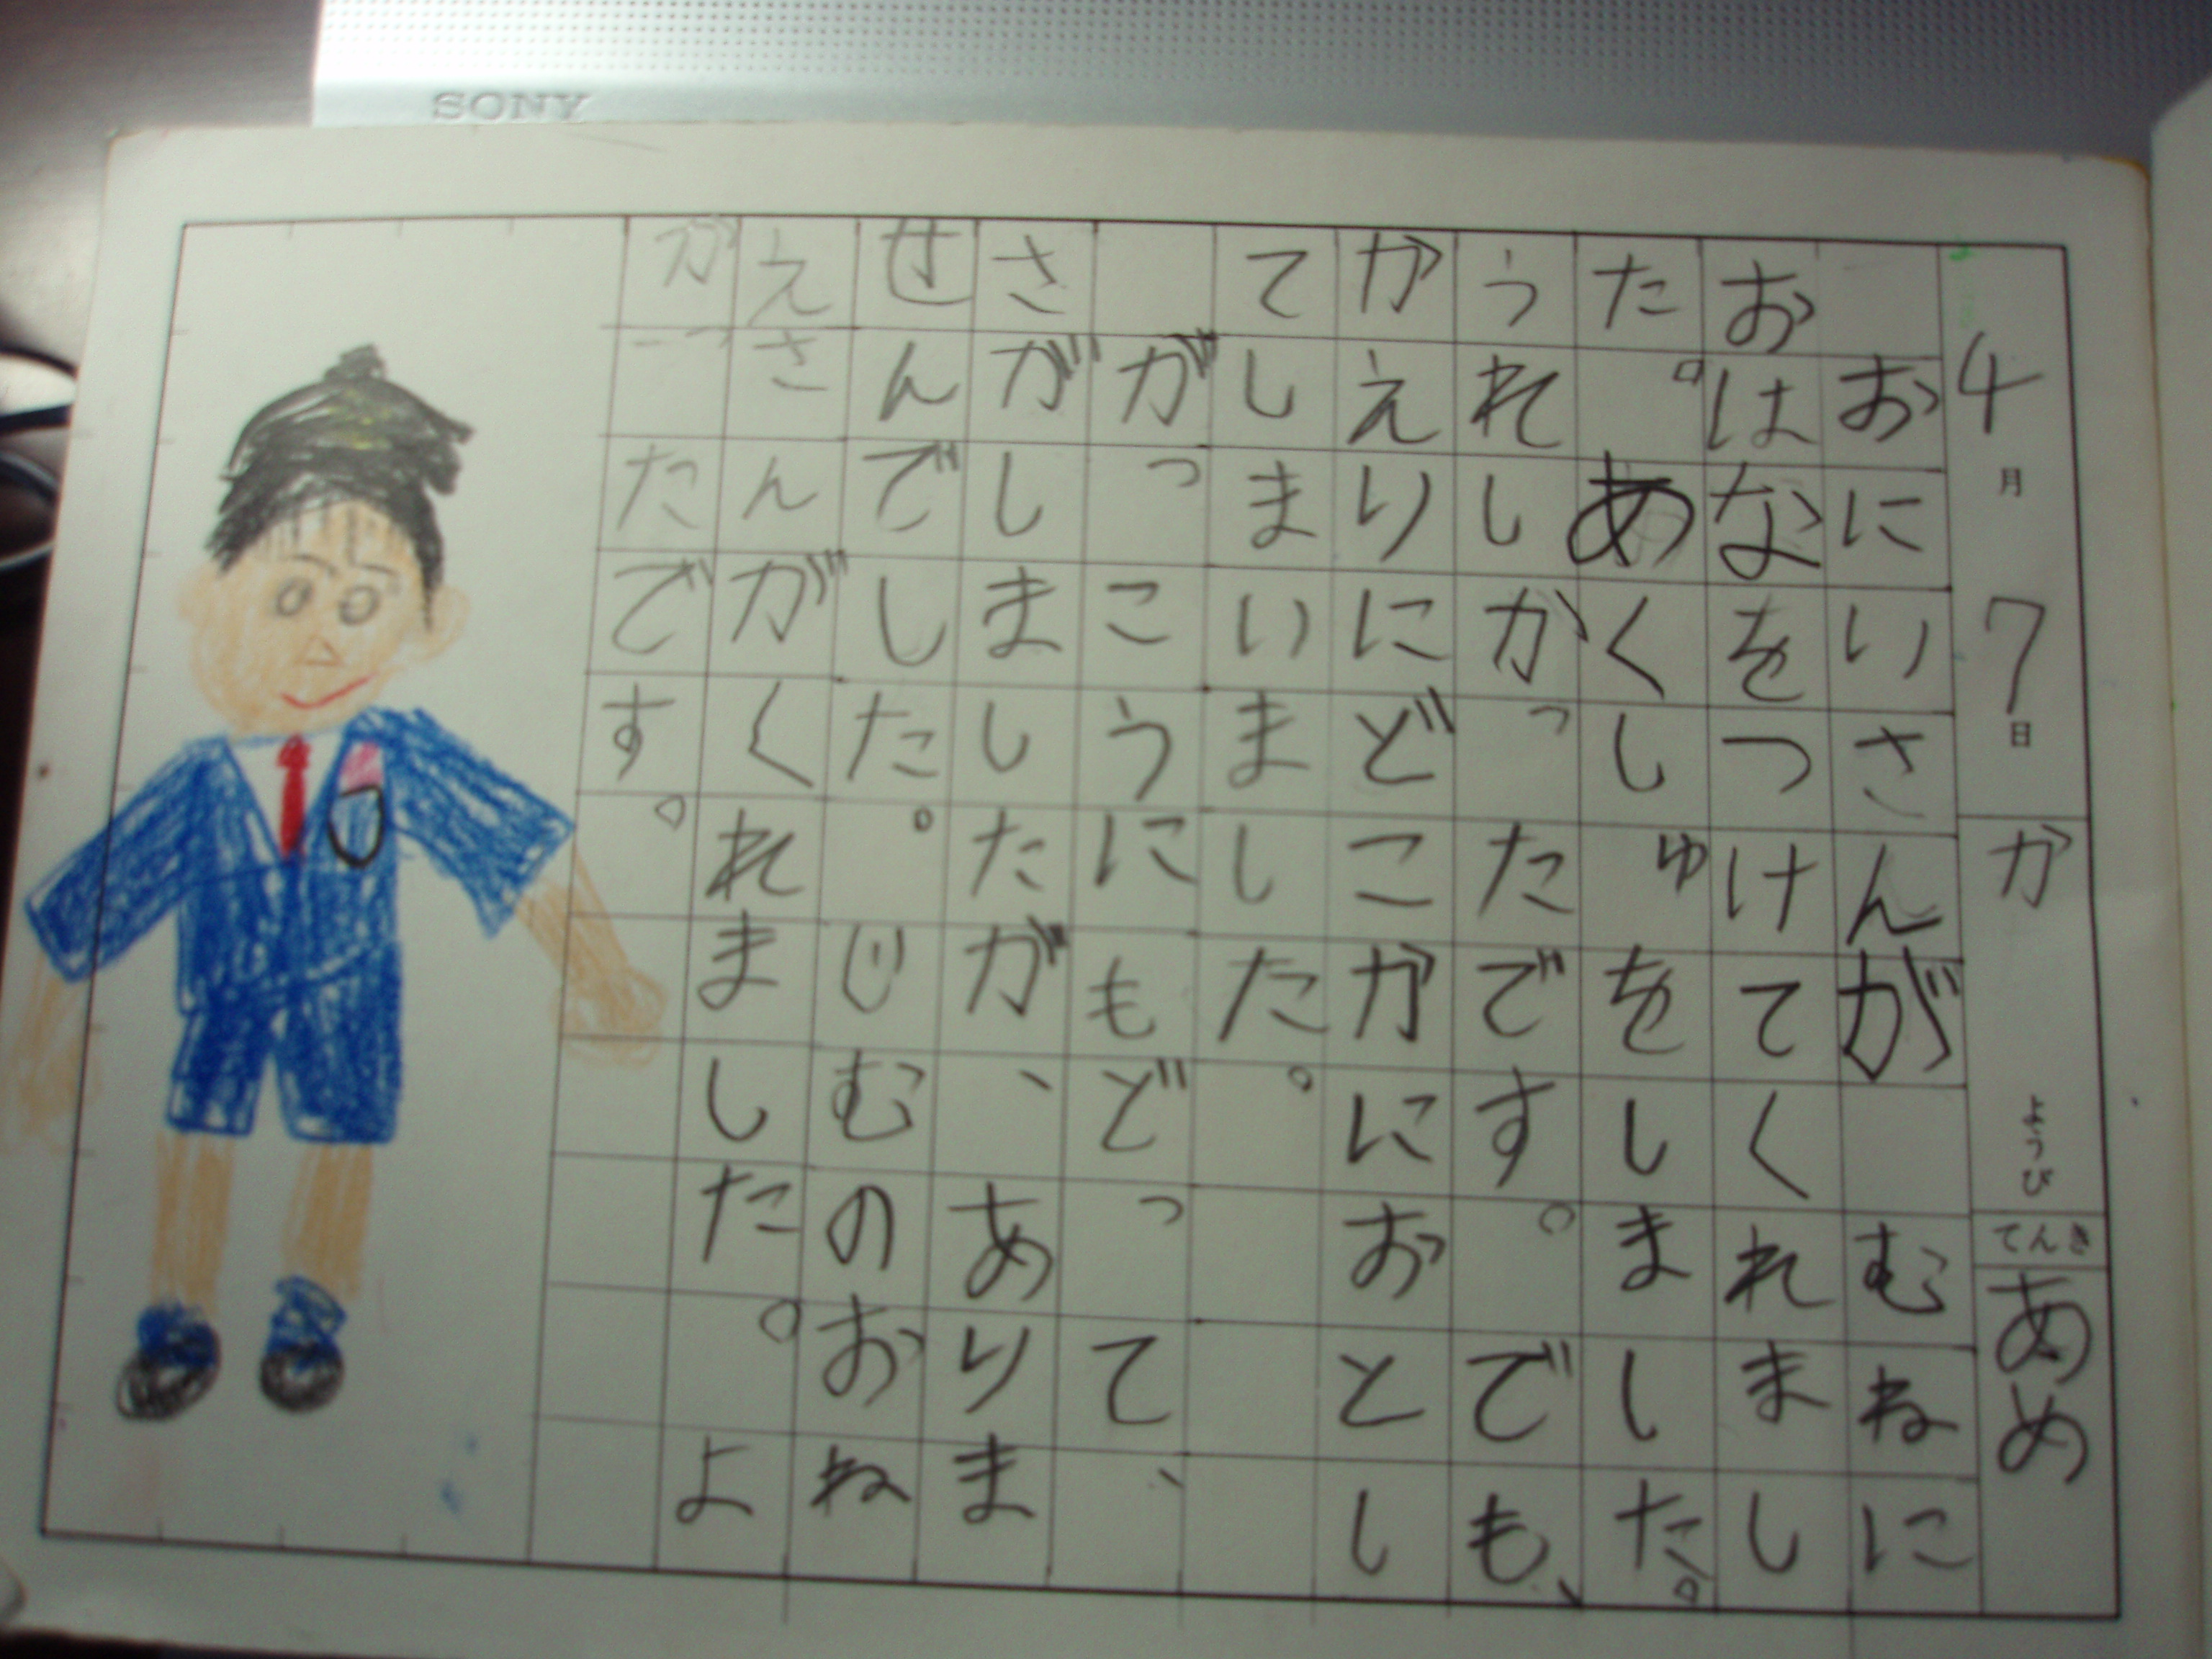 SONY
4月7日 か ようび てんき あめ
おにいさんが むねに
おはなをつけてくれまし
た。あくしゅをしました。
うれしかったです。でも、
かえりにどこかにおとし
てしまいました。
がっこうにもどって、
さがしましたが、ありま
せんでした。じむのおね
えさんがくれました。よ
かったです。